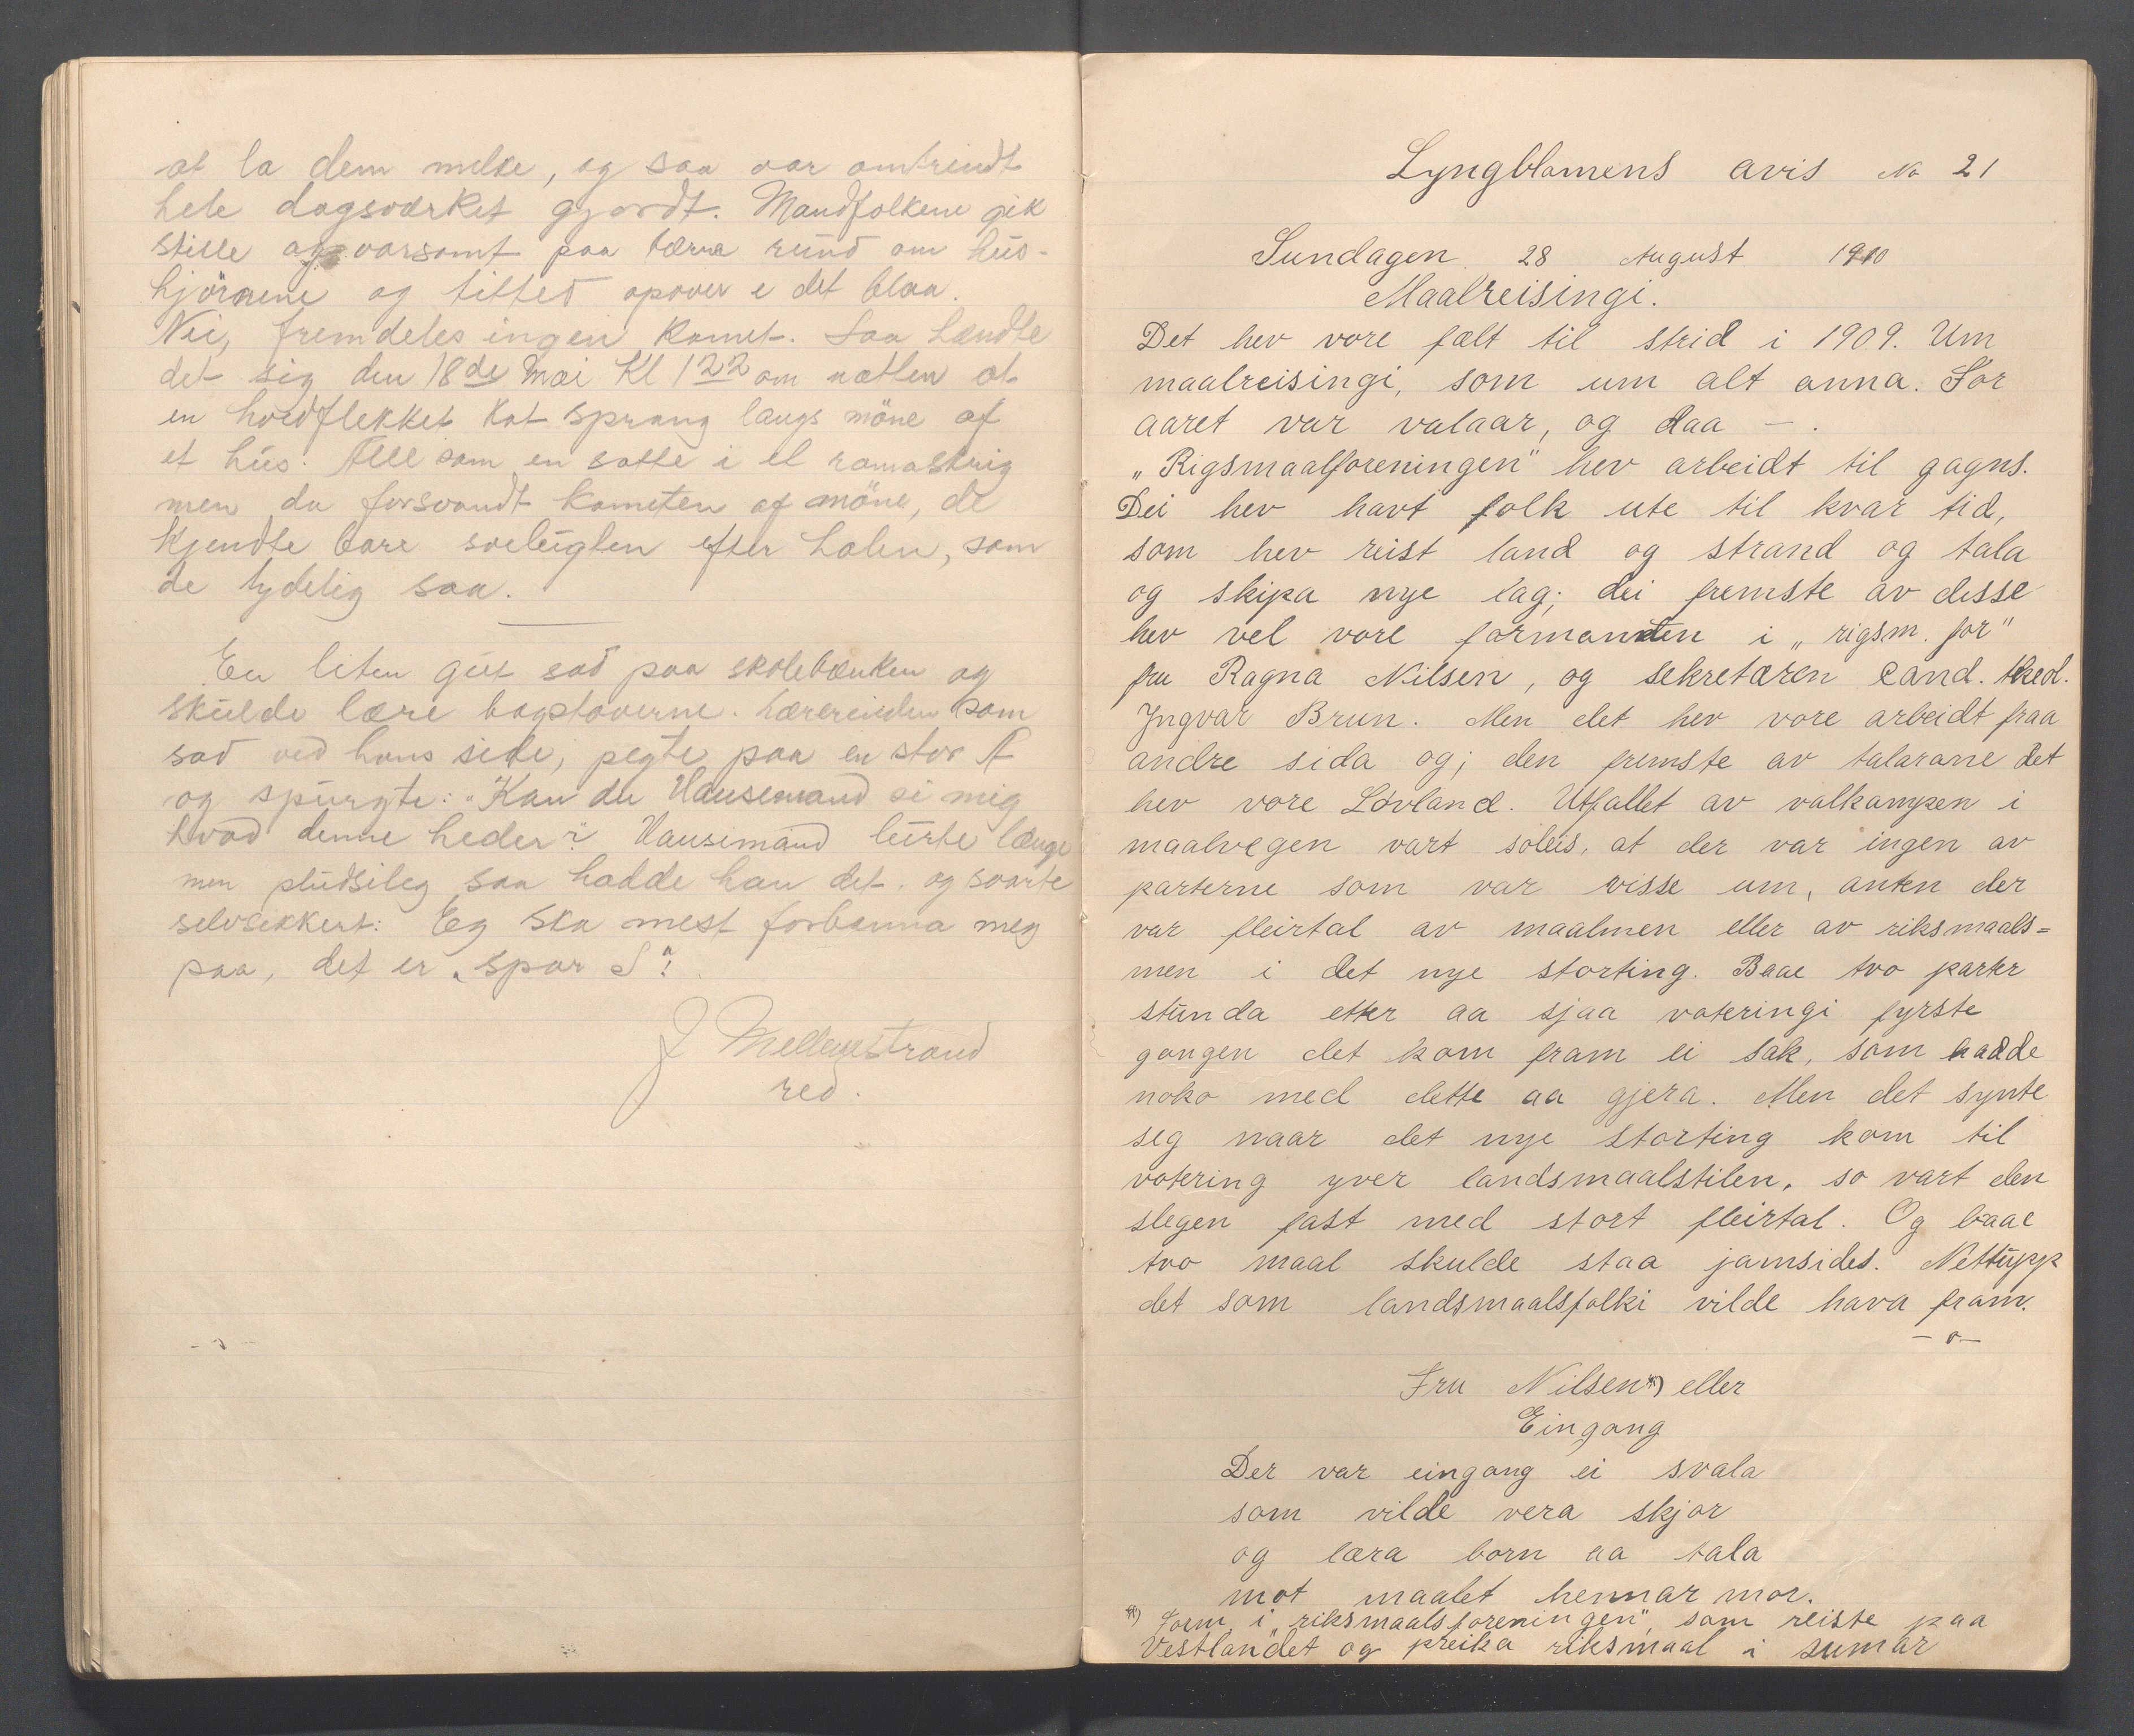 at la dem melke, og saa var omtrendt
hele dagsværket gjordt. Mandfolkene gik
stille og varsomt paa tærne rund om hus-
hjörnene og tittet opover e det blaa.
Nei, fremdeles ingen Komet. Saa hændte
det sig den 18de Mai Kl 12 om natten at
en hvidflekket Kat sprang langs möne af
et hus. Alle som en satte i et ramaskrig
men da forsvandt Kometen af möne, de
Kjendte bare svovluglen efter halen, som
de tydelig saa.
En liten gut sad paa skolebænken og
skulde lære bogstaverne. Lærerinden som
sad ved hans side, pegte paa en stor A
og spurgte: "Kan du Hansemand si mig
hvad denne heder?" Hansemand lurte længe
men pludsileg saa hadde han det. og svarte
selvsikkert: Eg ska mest forbanna meg
paa, det er „spar S"!
J Mellemstrand
red.
Lyngblomens avis No 21
Sundagen 28 August 1910
Maalreisingi.
Det hev vore fælt til strid i 1909. Um
maalreisingi, som um alt anna. For
aaret var valaar, og daa – .
„Rigsmaalforeningen" hev arbeidt til gagns.
Dei hev havt folk ute til kvar tid,
som hev reist land og strand og tala
og skipa nye lag; dei fremste av disse
hev vel vore formannen i „rigsm. for"
fru Ragna Nilsen, og sekretæren cand. theol.
Yngvar Brun. Men det hev vore arbeidt fraa
andre sida og; den fremste av talarane det
hev vore Lövland. Utfallet av valkampen i
maalvegen vart soleis, at der var ingen av
parterne som var visse um, anten der
var fleirtal av maalmen eller av riksmaals=
men i det nye storting. Baae tvo parter
stunda etter aa sjaa voteringi fyrste
gongen det kom fram ei sak, som hadde
noko med dette aa gjera. Men det synte
seg naar det nye storting kom til
votering yver landsmaalstilen, so vart den
slegen fast med stort fleirtal. Og baae
tvo maal skulde staa jamsides. Nettupp
det som landsmaalsfolki vilde hava fram.
– o –
Fru Nilsen *) eller
Eingong
Der var eingong ei svala
som vilde vera skjor
og læra born aa tala
mot maalet hennar mor.
*) Form. i „riksmaalsforeningen", som reiste paa
Vestlandet og preika riksmaal i sumar